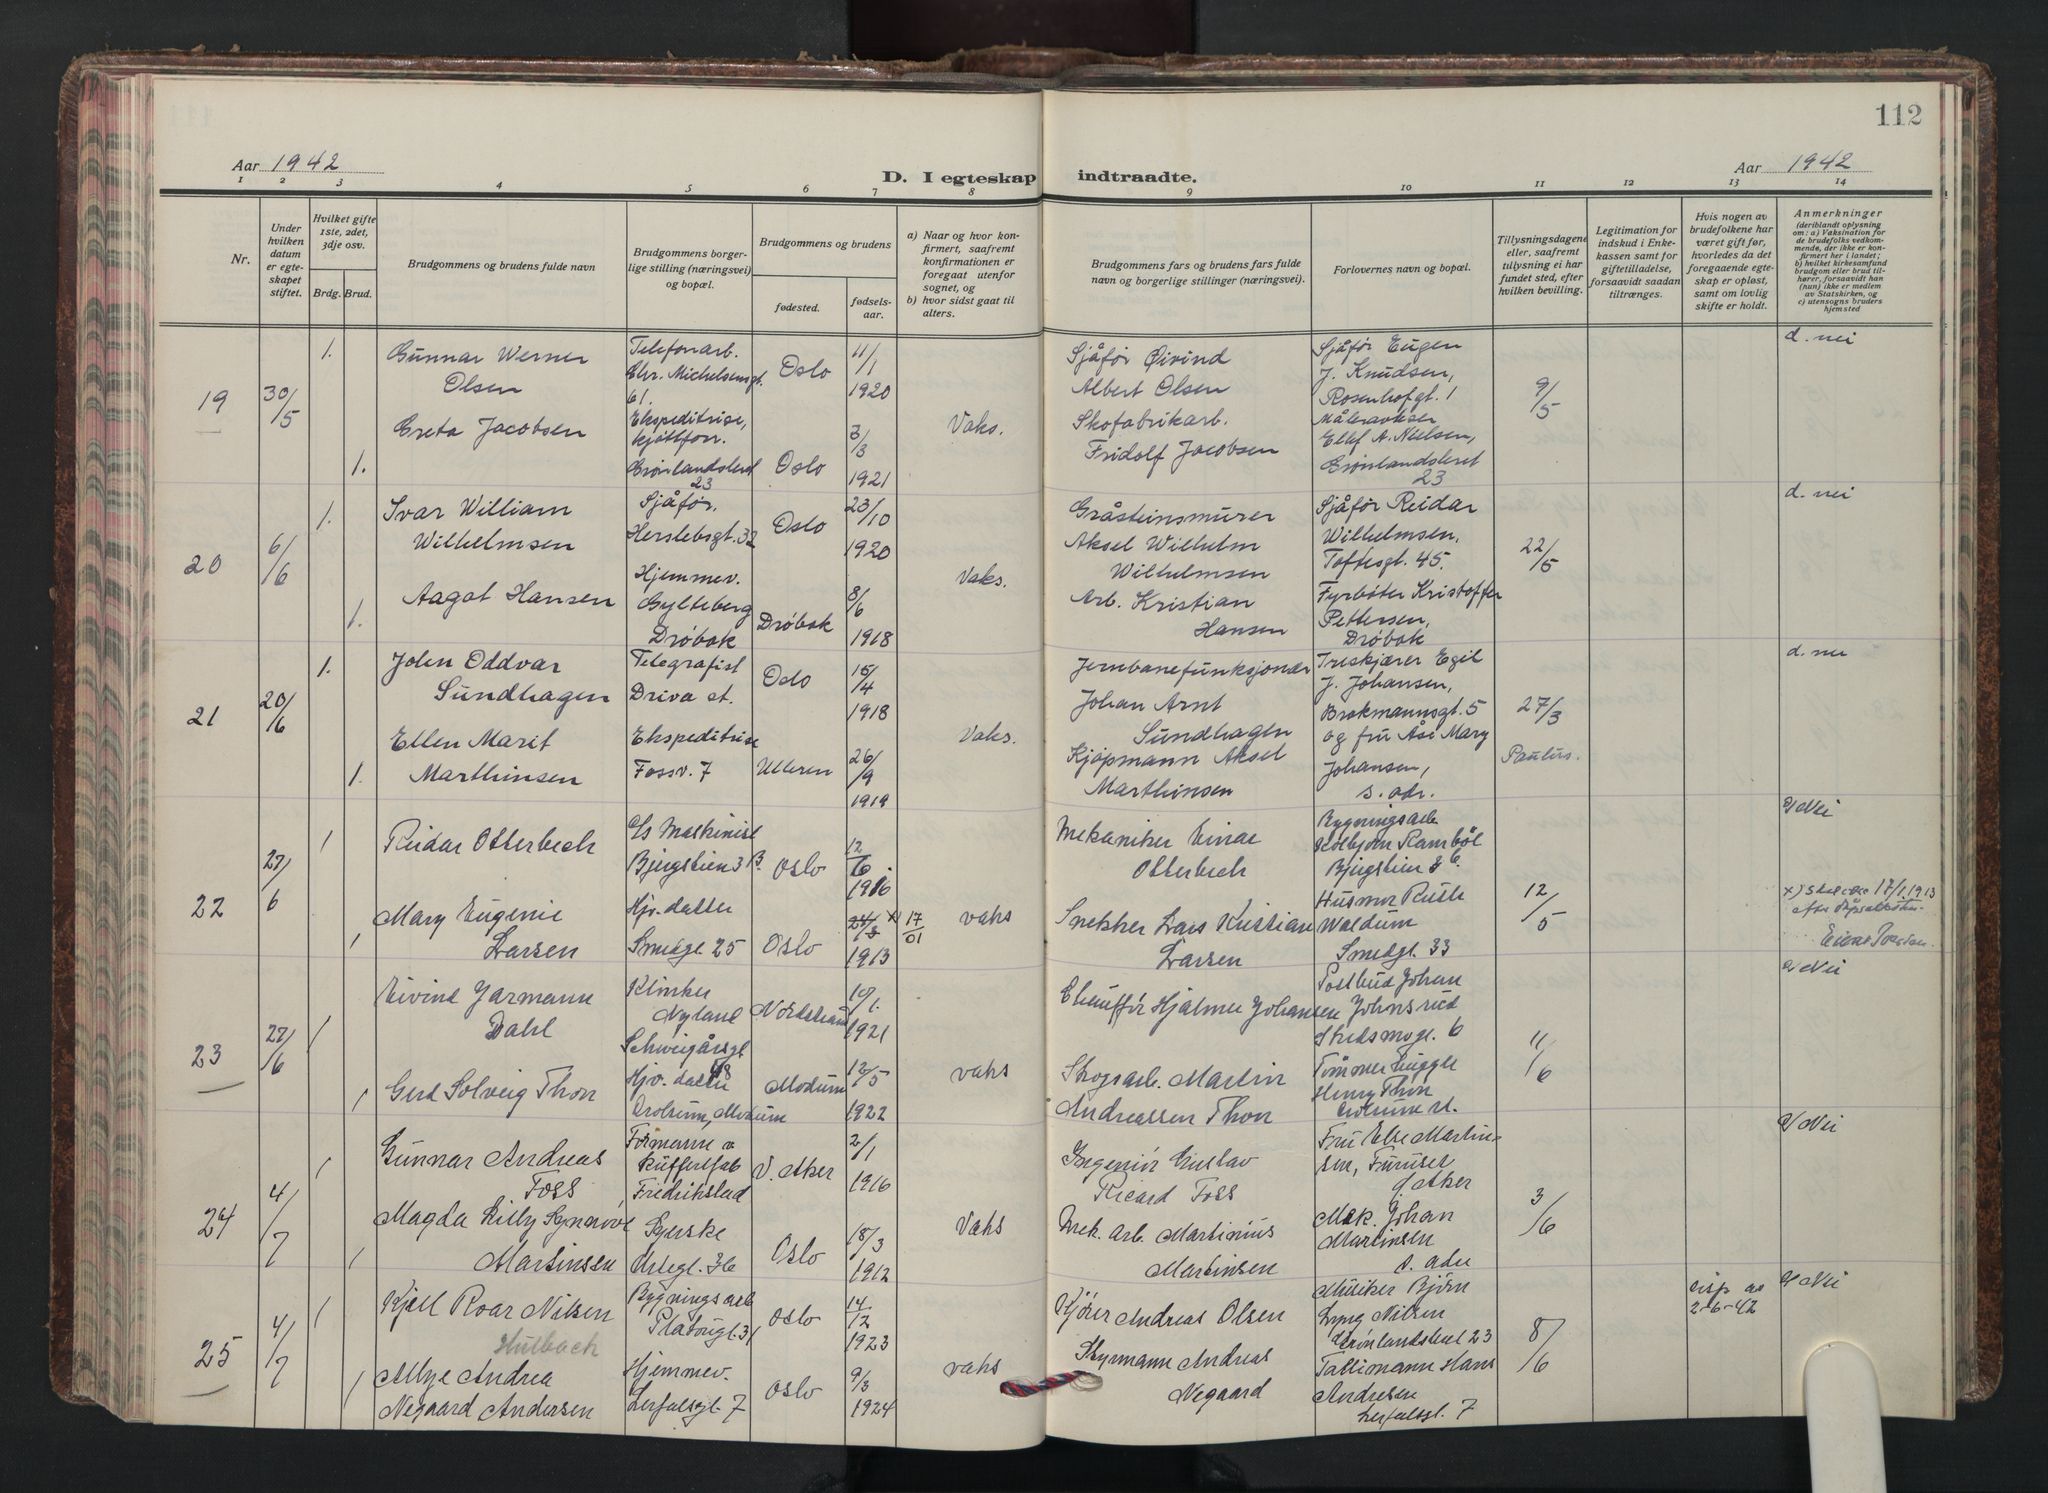 112
Aar 1942
D. I egteskap indtraadte.
Aar 1942
1 2 3 4 5 6 7 8 9 10 11 12 13 14
Nr.
Under hvilken datum er egteskapet stiftet.
Hvilket gifte 1ste, 2det, 3dje osv.
Brdg. Brud.
Brudgommens og brudens fulde navn
Brudgommens borgerlige stilling (næringsvei) og bopæl.
Brudgommens og brudens
fødested.
fødselsaar.
a) Naar og hvor konfirmert, saafremt konfirmationen er foregaat utenfor sognet, og
b) hvor sidst gaat til alters.
Brudgommens fars og brudens fars fulde navn og borgerlige stillinger (næringsvei).
Forlovernes navn og bopæl.
Tillysningsdagene eller, saafremt tillysning ei har fundet sted, efter hvilken bevilling.
Legitimation for indskud i Enkekassen samt for giftetilladelse, forsaavidt saadan tiltrænges.
Hvis nogen av brudefolkene har været gift før, hvorledes da det foregaaende egteskap er opløst, samt om lovlig skifte er holdt.
Anmerkninger
(deriblandt oplysning om: a) Vaksination for de brudefolks vedkommende, der ikke er konfirmert her i landet;
b) hvilket kirkesamfund brudgom eller brud tilhører, forsaavidt han (hun) ikke er medlem av Statskirken, og
c) utensogns bruders hjemsted
19
30/5
1.
Gunnar Werner
Olsen
Telefonarb.
Chr. Michelsensgt.
61.
Oslo
11/1
1920
Sjåfør Øivind
Albert Olsen
Sjåfør Eugen
J. Knudsen,
Rosenhofgt. 1
9/5
d. nei
1.
Greta Jacobsen
Ekspeditrise,
kjøttforr.
Grønlandsleret
23
Oslo
3/3
1921
Vaks.
Skofabrikarb.
Fridolf Jacobsen
Måleravkser
Ellef A. Nielsen,
Grønlandsleret
23
20
6/6
1.
Ivar William
Wilhelmsen
Sjåfør,
Herslebsgt. 32
Oslo
23/10
1920
Vaks.
Gråsteinsmurer
Aksel Wilhelm
Wilhelmsen
Sjåfør Reidar
Wilhelmsen,
Toftesgt. 45.
22/5
d. nei
1.
Aagot Hansen
Hjemmev.
Gylteberg
Drøbak
Drøbak
8/6
1918
Arb. Kristian
Hansen
Fyrbøter Kristoffer
Pettersen,
Drøbak
21
20/6
1.
John Oddvar
Sundhagen
Telegrafist
Driva st.
Oslo
15/4
1918
Jernbanefunksjonær
Johan Arnt
Sundhagen
Treskjærer Egil
J. Johansen,
Brokmannsgt. 5
og fru Åse Mary
Johansen,
s. adr.
27/3
Paulus.
d. nei
1.
Ellen Marit
Marthinsen
Ekspeditrise
Fossv. 7
Ulleren
26/9
1919
Vaks.
Kjøpmann Aksel
Marthinsen
22
27/6
1
Reidar Otterbech
Maskinist
Bjergstien 3 B.
Oslo
12/6
1916
Mekaniker Einar
Otterbech
Bygningsarb
Kolbjørn Rambøl
Bjergstien 3 b
12/5
d/ Nei
1
Mary Eugenie
Larsen
Hjv. datter
Smedgt. 25
Oslo
1913
x) 17/01
vaks
Snekker Lars Kristian
Larsen
Husmor Ruth
Waldum
Smedgt. 33
x) Skal være 17/1 1913
23
27/6
1
Eivind Jarmann
Dahl
Klinker
Nyland
Schweigårsgt
48
Nordstrand
10/1.
1921
Chauffør Hjalmar Johansen
Postbud Johan
Johnsrud
Skedsmogt. 6
11/6
d/ Nei
1
Gerd Solveig Thon
Hjv. datter
Drolsum, Modum
Modum
12/5
1922
vaks
Skogsarb. Martin
Andreassen Thon
Tømmerhugger
Henry Thon
24
4/7
1
Gunnar Andreas
Foss
Formann v
kuffertfab
Fredrikstad
V. Aker
2/1
1916
Ingeniør Gustav
Ricard Foss
Fru Else Martinsen, Furuset
Ø. Aker
3/6
d/ Nei
1
Magda Lilly Synnøve
Martinsen
Syerske
Urtegt. 36
Oslo
18/3
1912
Vaks
Mek. arb. Martinius
Martinsen
Mek. Johan
Martinsen
s. adr
25
4/7
1
Kjell Roar Nilsen
Hulbach
Bygningsarb
Platougt. 31
Oslo
14/12
1923
Kjører Andreas Olsen
Musiker Bjørn
Lyng Nilsen
Grønlandsleret 23
8/6
disp av
2-6-42
d/ Nei
1
Albye Andrea
Negaard Andersen
Hjemmev.
Lerfalsgt. 7
Oslo
9/3
1924
vaks
Styrmann Andreas
Negaard
Tallimann Hans
Andresen
Lerfalsgt. 7